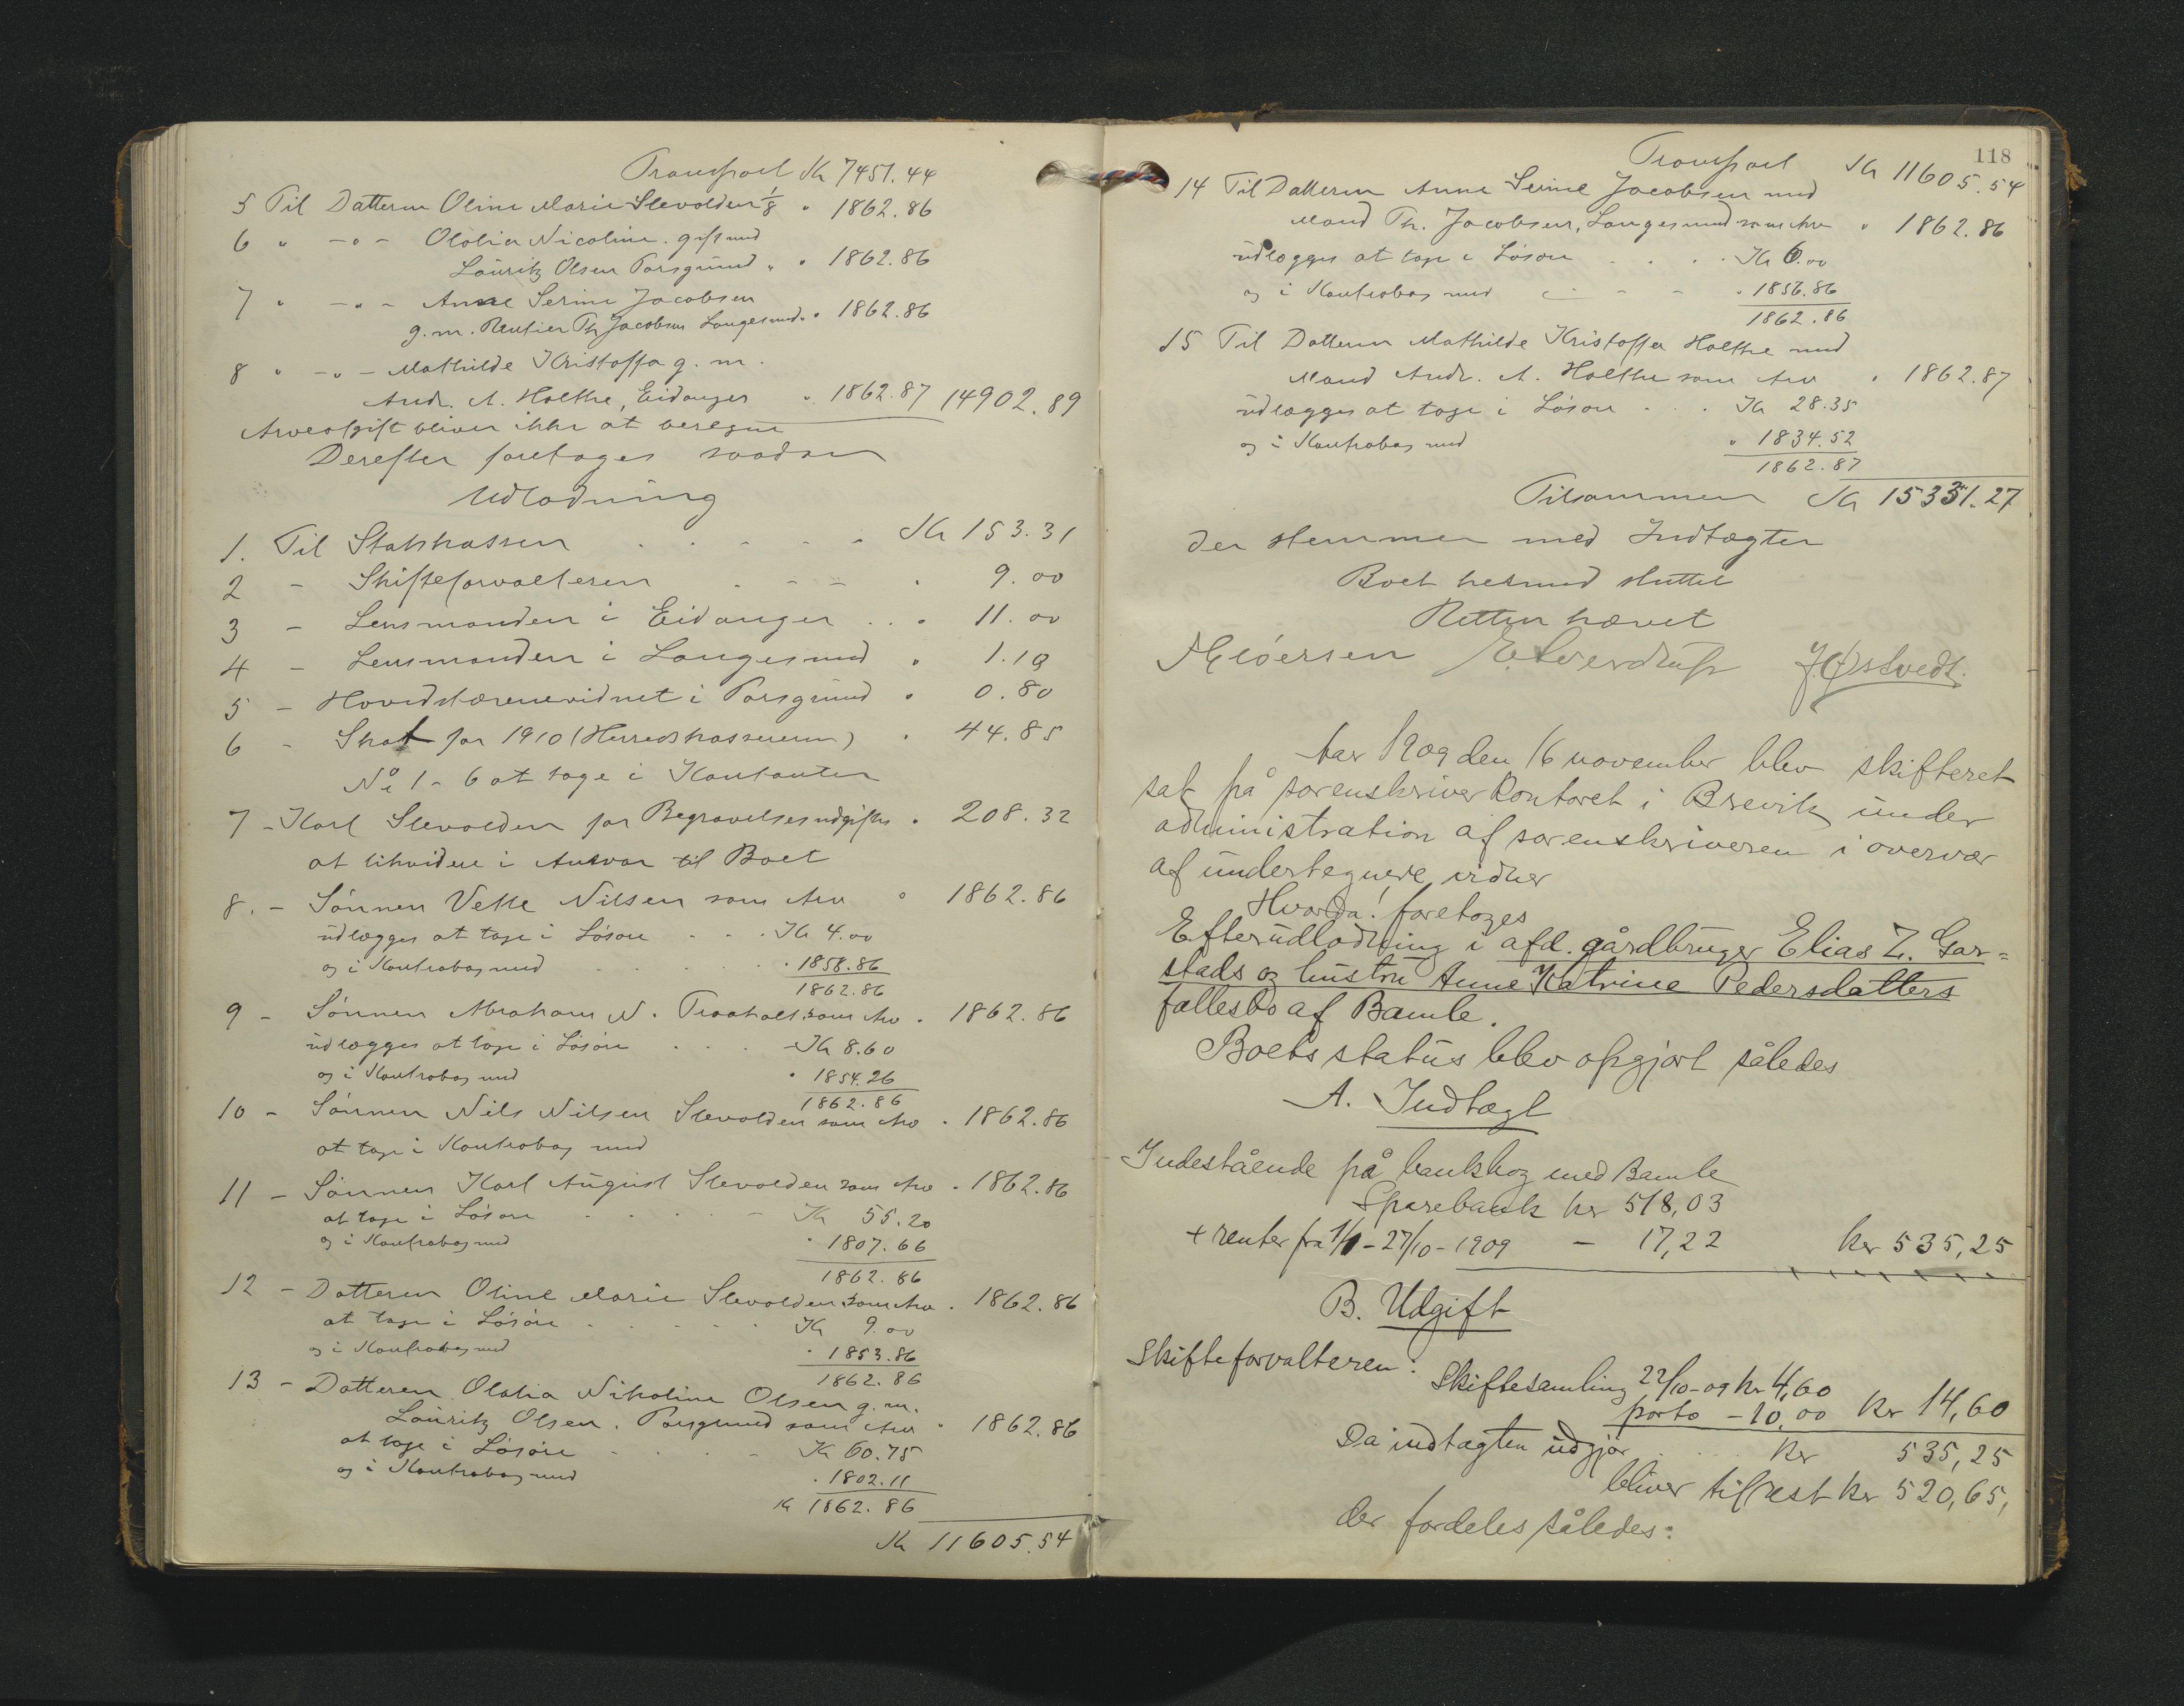 Transport Kr 7451.44
5 Til Datteren Oline Marie Slevolden 1/8 " 1862.86
6 " -"- Olalia Nicoline. gift med
Lauritz Olsen Porsgrund " " 1862.86
7 " -"- Anne Serine Jacobsen
g. m. Rentier Th Jacobsen Langesund " " 1862.86
8 " -"- Mathilde Kristoffa g. m.
Andr. A. Holthe, Eidanger " 1862.87 14902.89
Arveafgift bliver ikke at beregne
Derefter foretages saadan
Udlodning
1. Til Statskassen . . . . - Kr 153.31
2 - Skifteforvalteren . - - . 9.00
3 - Lensmanden i Eidanger . . . 11.00
4 - Lensmanden i Langesund " 1.10
5 - Hovedstævnevidnet i Porsgrund " 0.80
6 - Skat for 1910 (Herredskassereren) " 44.85
No 1 - 6 at tage i Kontanter
7 - Karl Slevolden for Begravelsesudgifter " 208.32
at likvidere i Ansvar til Boet
8. - Sønnen Vetle Nilsen som Arv " 1862.86
udlægges at tage i Løsøre . . . Kr 4.00
og i Kontrabog med . . . . . " 1858.86
1862.86
9 - Sønnen Abraham N. Traaholt som Arv " 1862.86
udlægges at tage i Løsøre . . . - Kr 8.60
og i Kontrabog med " 1854.26
1862.86
10 - Sønnen Nils Nilsen Slevolden som Arv " 1862.86
at tage i Kontrabog med
11 - Sønnen Karl August Slevolden som Arv " 1862.86
at tage i Løsøre . . . . - Kr 55.20
og i Kontrabog med " 1807.66
1862.86
12 - Datteren Oline Marie Slevolden som Arv " 1862.86
at tage i Løsøre . . . . . Kr 9.00
og i Kontrabog med " 1853.86
1862.86
13 - Datteren Olalia Nikoline Olsen g. m.
Lauritz Olsen. Porsgrund som Arv " 1862.86
at tage i Løsøre - . . . - Kr 60.75
og i Kontrabog med " 1802.11
Kr 1862.86
Kr 11605.54
118
Transport Kr 11605.54
14 Til Datteren Anne Serine Jacobsen med
Mand Th. Jacobsen, Langesund som Arv " 1862.86
udlægges at tage i Løsøre . . . . Kr 6.00
og i Kontrabog med - - - " 1856.86
1862.86
15 Til Datteren Mathilde Kristoffa Holthe med
Mand Andr. A. Holthe som Arv " 1862.87
udlægges at tage i Løsøre . . . Kr 28.35
og i Kontrabog med " 1834.52
1862.87
Tilsammen Kr 15331.27
der stemmer med Indtægten
Boet hermed sluttet
Retten hævet
J. Østvedt.
Aar 1909 den 16 november blev skifteret
sat på sorenskriverkontoret i Brevik under
administration af sorenskriveren i overvær
af undertegnede vidner
Hvorda! foretoges
Efterudlodning i afd. gårdbruger Elias Z. Gar=
stads og hustru Anne Katrine Pedersdatters
fællesbo af Bamle.
Boets status blev opgjort således
A. Indtægt
Indestående på bankbog med Bamle
Sparebank kr 518,03
+ renter fra 1/1 - 27/10 - 1909 - 17,22 kr 535,25
B. Udgift
Skifteforvalteren:
Skiftesamling 22/10-09 kr 4,60
porto - 10,00 kr 14,60
Da indtægten udgjør . . . kr 535,25
bliver til rest kr 520,65,
der fordeles således: